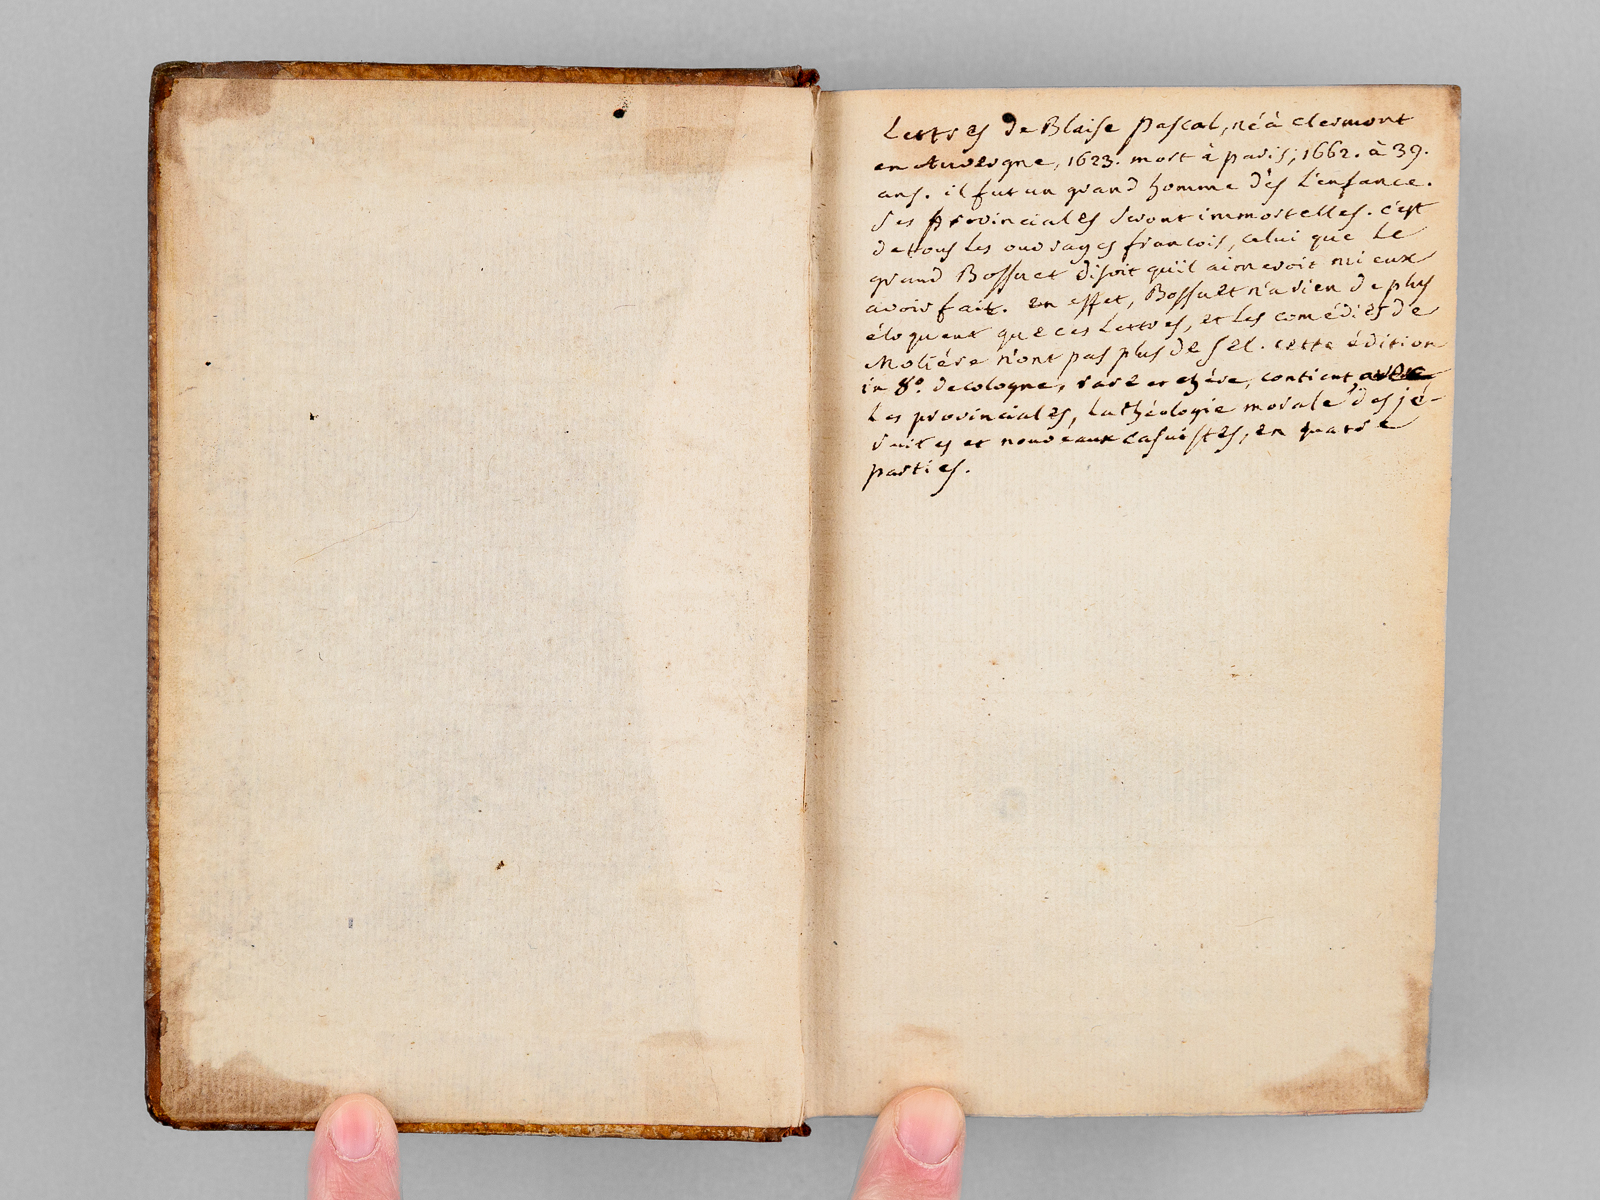 Lettres de Blaise pascal, né à clermont
en Auvergne, 1623. mort à paris, 1662. à 39.
ans. il fut un grand homme dès l'enfance.
Ses provinciales seront immortelles. c'est
de tous les ouvrages francois, celui que le
grand Bossuet disoit qu'il aimeroit mieux
avoir fait. en effet, Bossuet n'a rien de plus
éloquent que ces Lettres, et les comédies de
Moliére n'ont pas plus de sel. cette édition
in 8º. de cologne, rare et chére, contient
les provinciales, la théologie morale des jé-
suites et nouveaux casuistes, en quatre
parties.